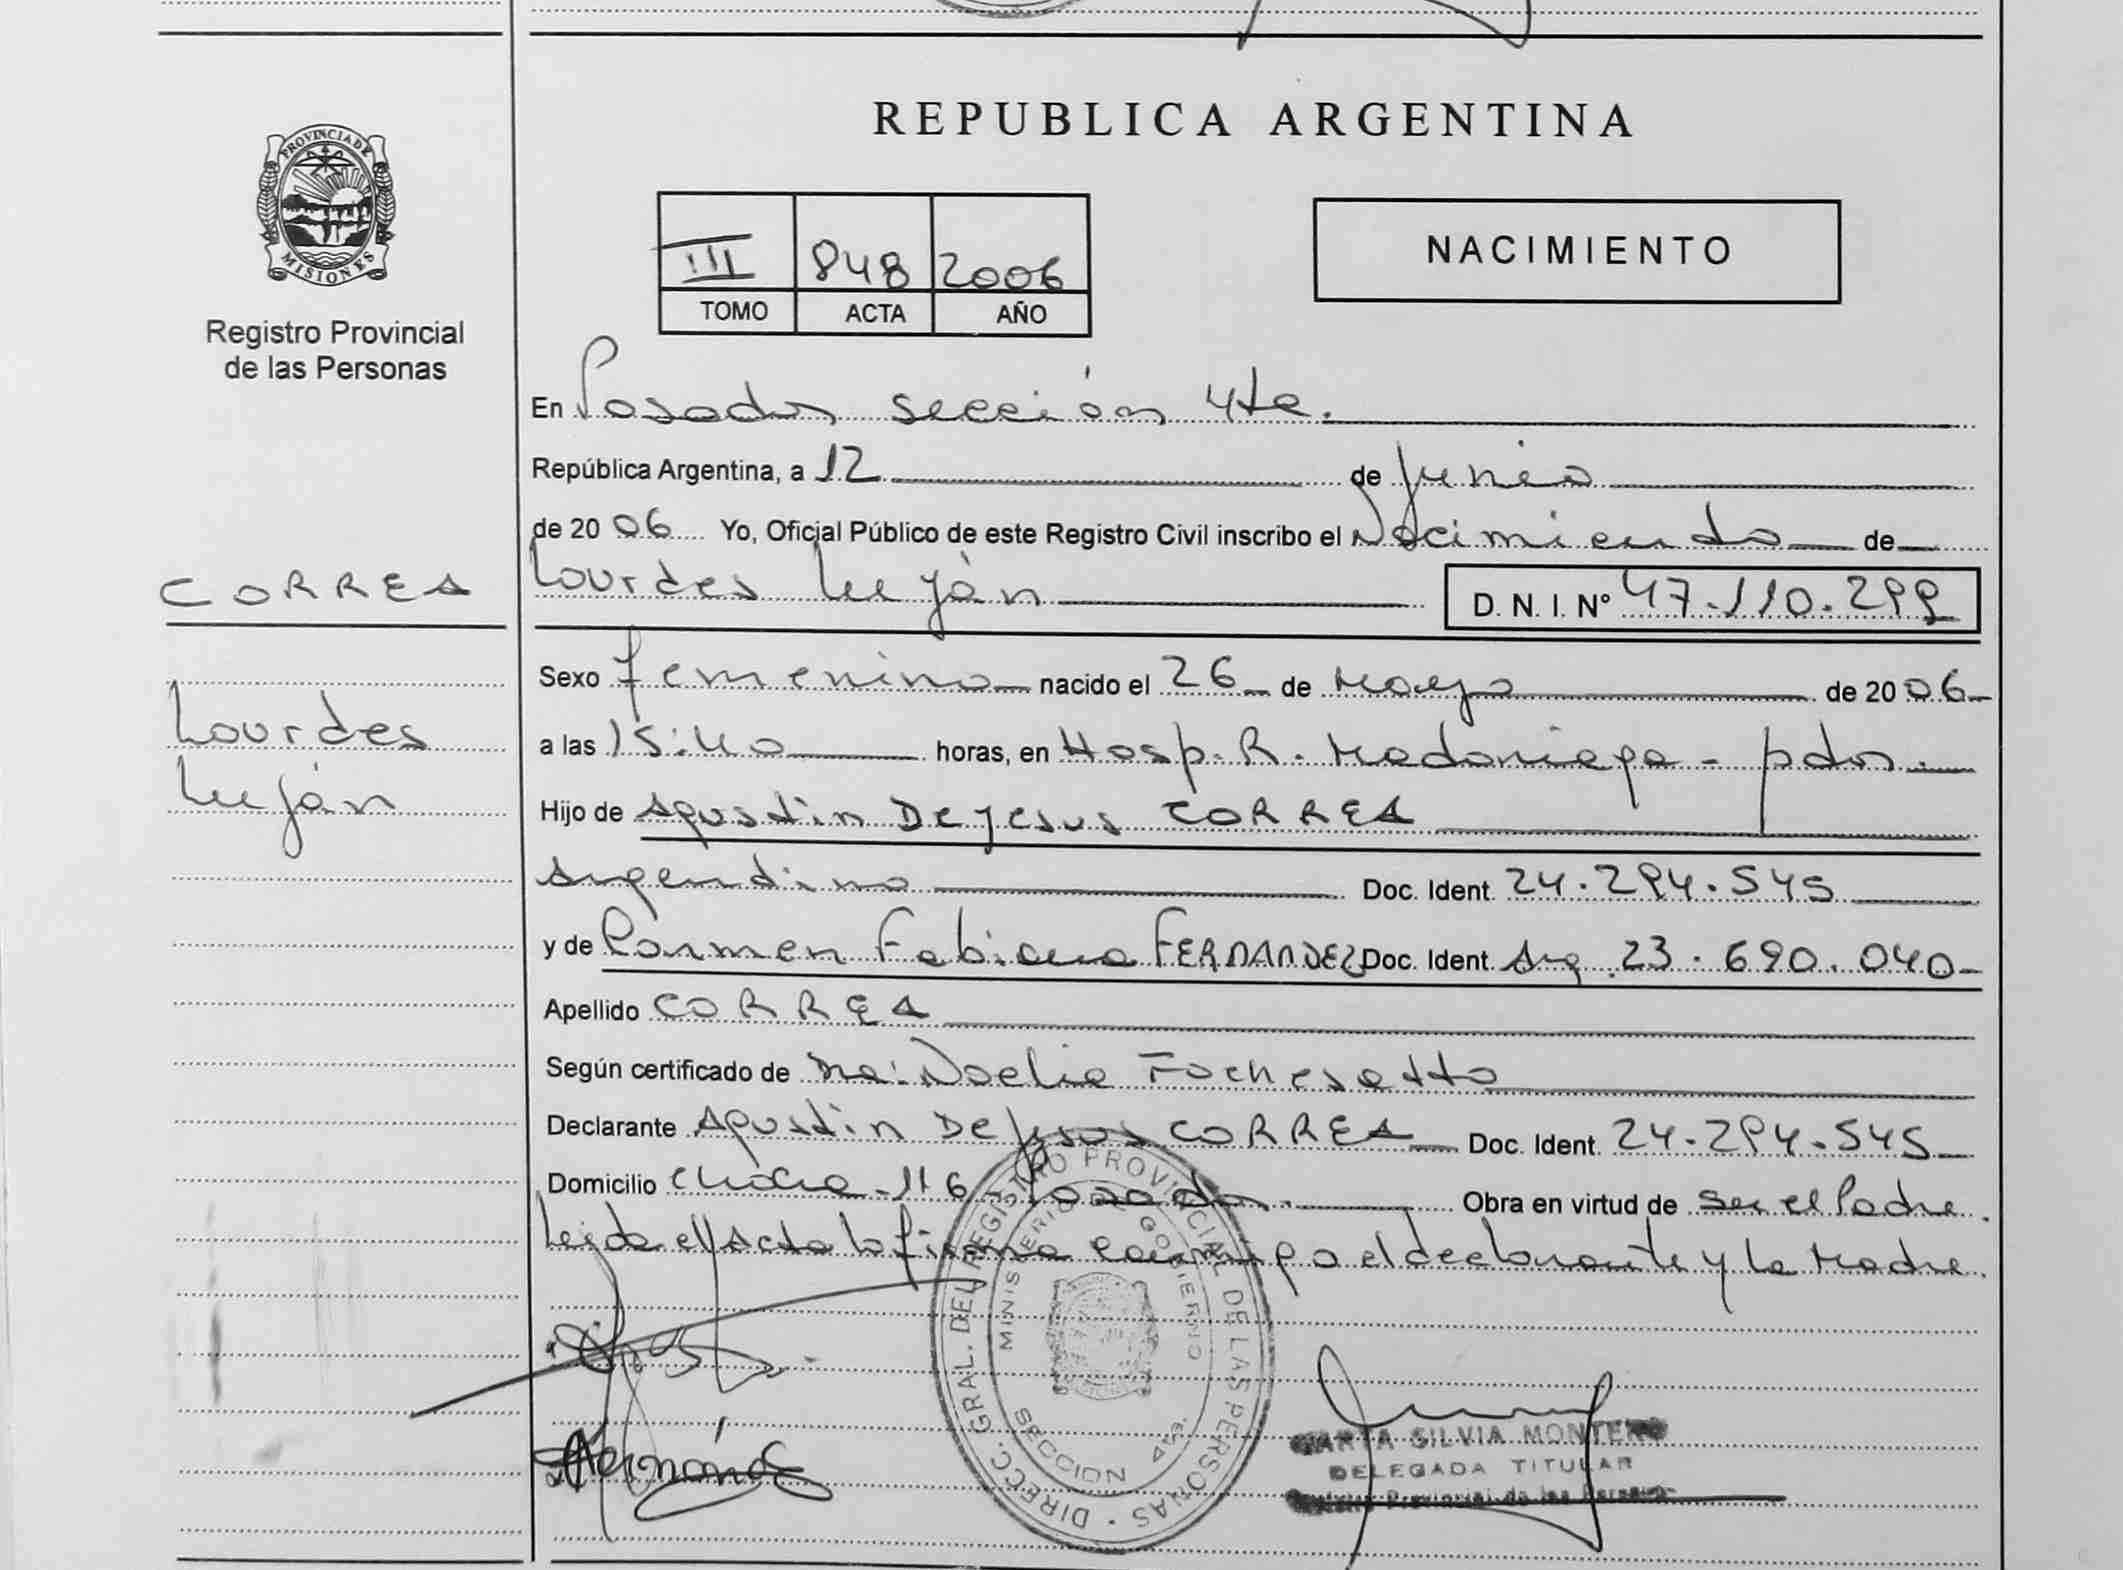 PROVINCIA DE
MISIONES
Registro Provincial
de las Personas
CORREA
Lourdes
Luján
REPUBLICA ARGENTINA
III 848 2006
TOMO ACTA AÑO
NACIMIENTO
En Posadas sección 4ta.
República Argentina, a 12 de Junio
de 2006 Yo, Oficial Público de este Registro Civil inscribo el Nacimiento de
Lourdes Luján D.N.I. Nº 47.110.299
Sexo femenino nacido el 26 de Mayo de 2006
a las 15:40 horas, en Hosp. R. Madariaga - pdas.
Hijo de Agustin De Jesus CORREA
Argentino Doc. Ident. 24.294.545
y de Carmen Fabiana FERNANDEZ Doc. Ident. Arg. 23.690.040
Apellido CORREA
Según certificado de Noelia Fochesatto
Declarante Agustin De Jesus CORREA Doc. Ident. 24.294.545
Domicilio 116 - Posadas. Obra en virtud de ser el Padre.
Leida el Acta la firma conmigo el declarante y la Madre.
DIRECC. GRAL. DEL REGISTRO PROVINCIAL DE LAS PERSONAS
MINISTERIO DE GOBIERNO
SECCION 4ta.
MARTA SILVIA MONTERO
DELEGADA TITULAR
Registro Provincial de las Personas